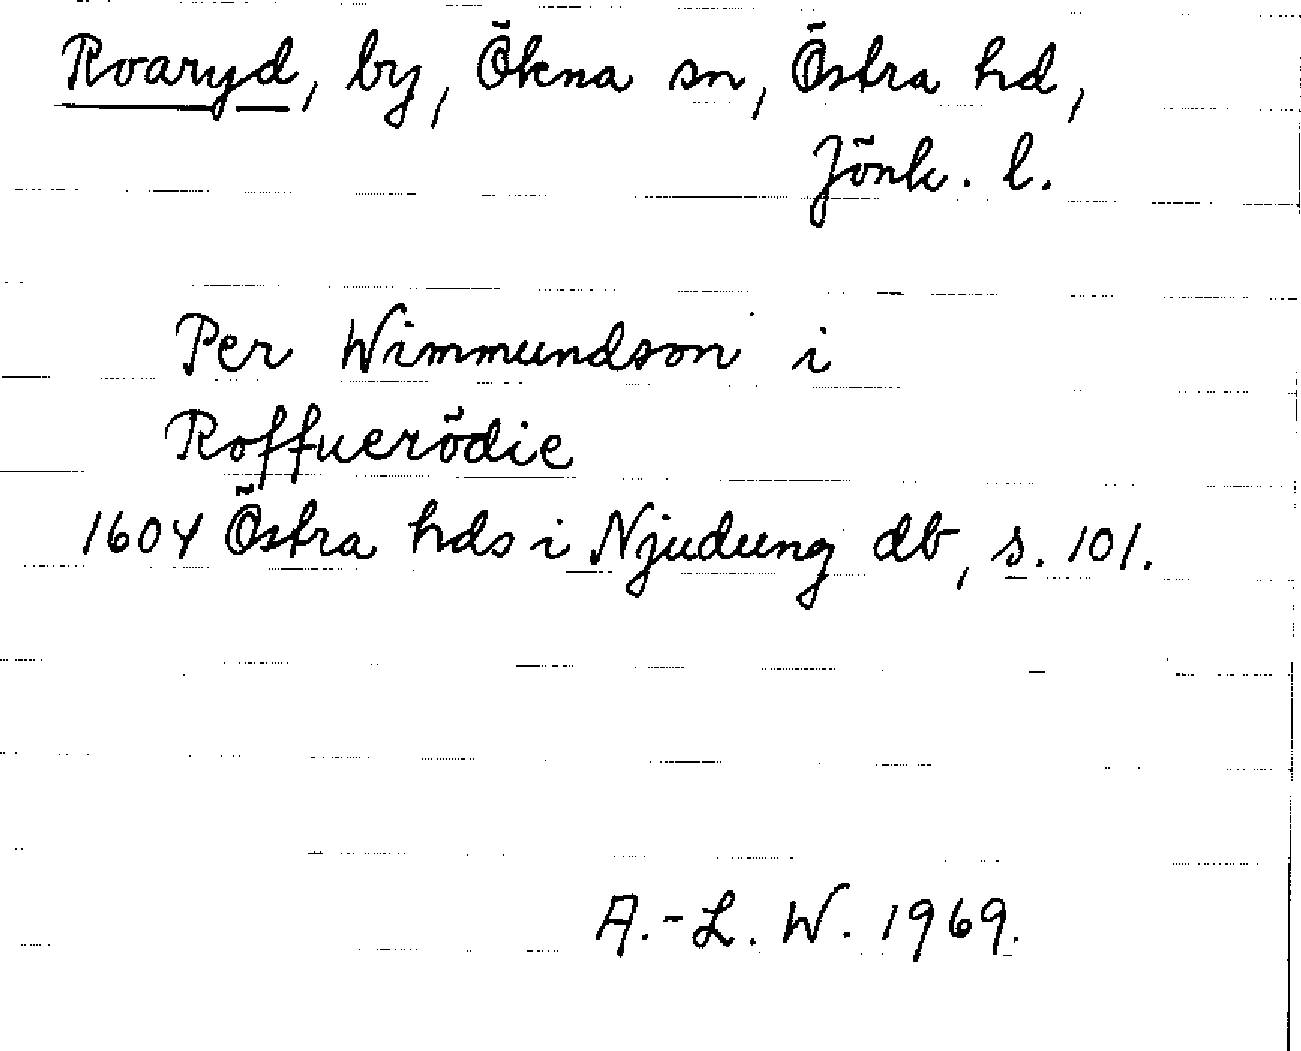 Roaryd, by, Ökna sn, Östra hd,
Jönk. l.
Per Wimmundson i
Roffuerödie
1604 Östra hds i Njudung db, s. 101.
A.-L. W. 1969.